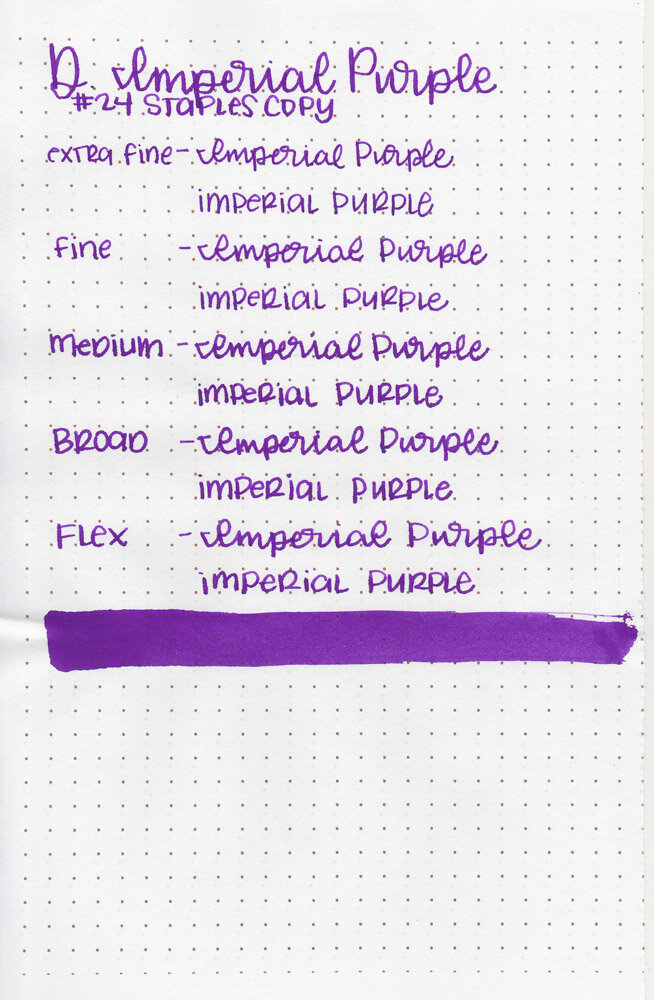 D. Imperial Purple
#24 Staples Copy
extra fine - Imperial Purple
imperial purple
fine - Imperial Purple
imperial purple
medium - Imperial Purple
imperial purple
Broad - Imperial Purple
imperial purple
Flex - Imperial Purple
imperial purple